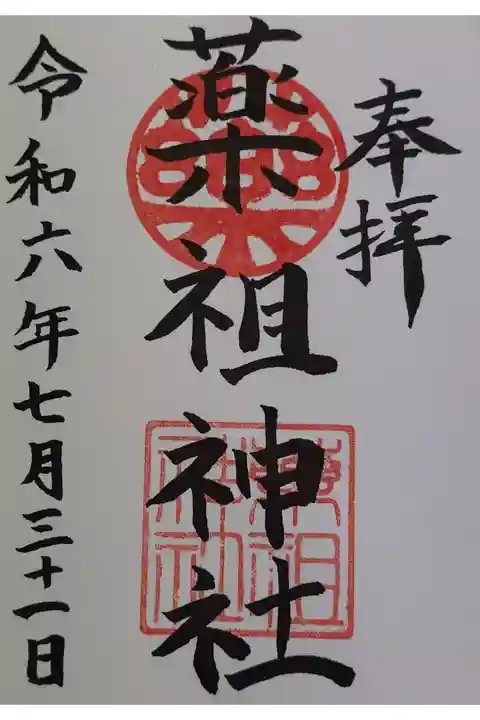 奉拝
薬祖神社
薬祖
神社
令和六年七月三十一日